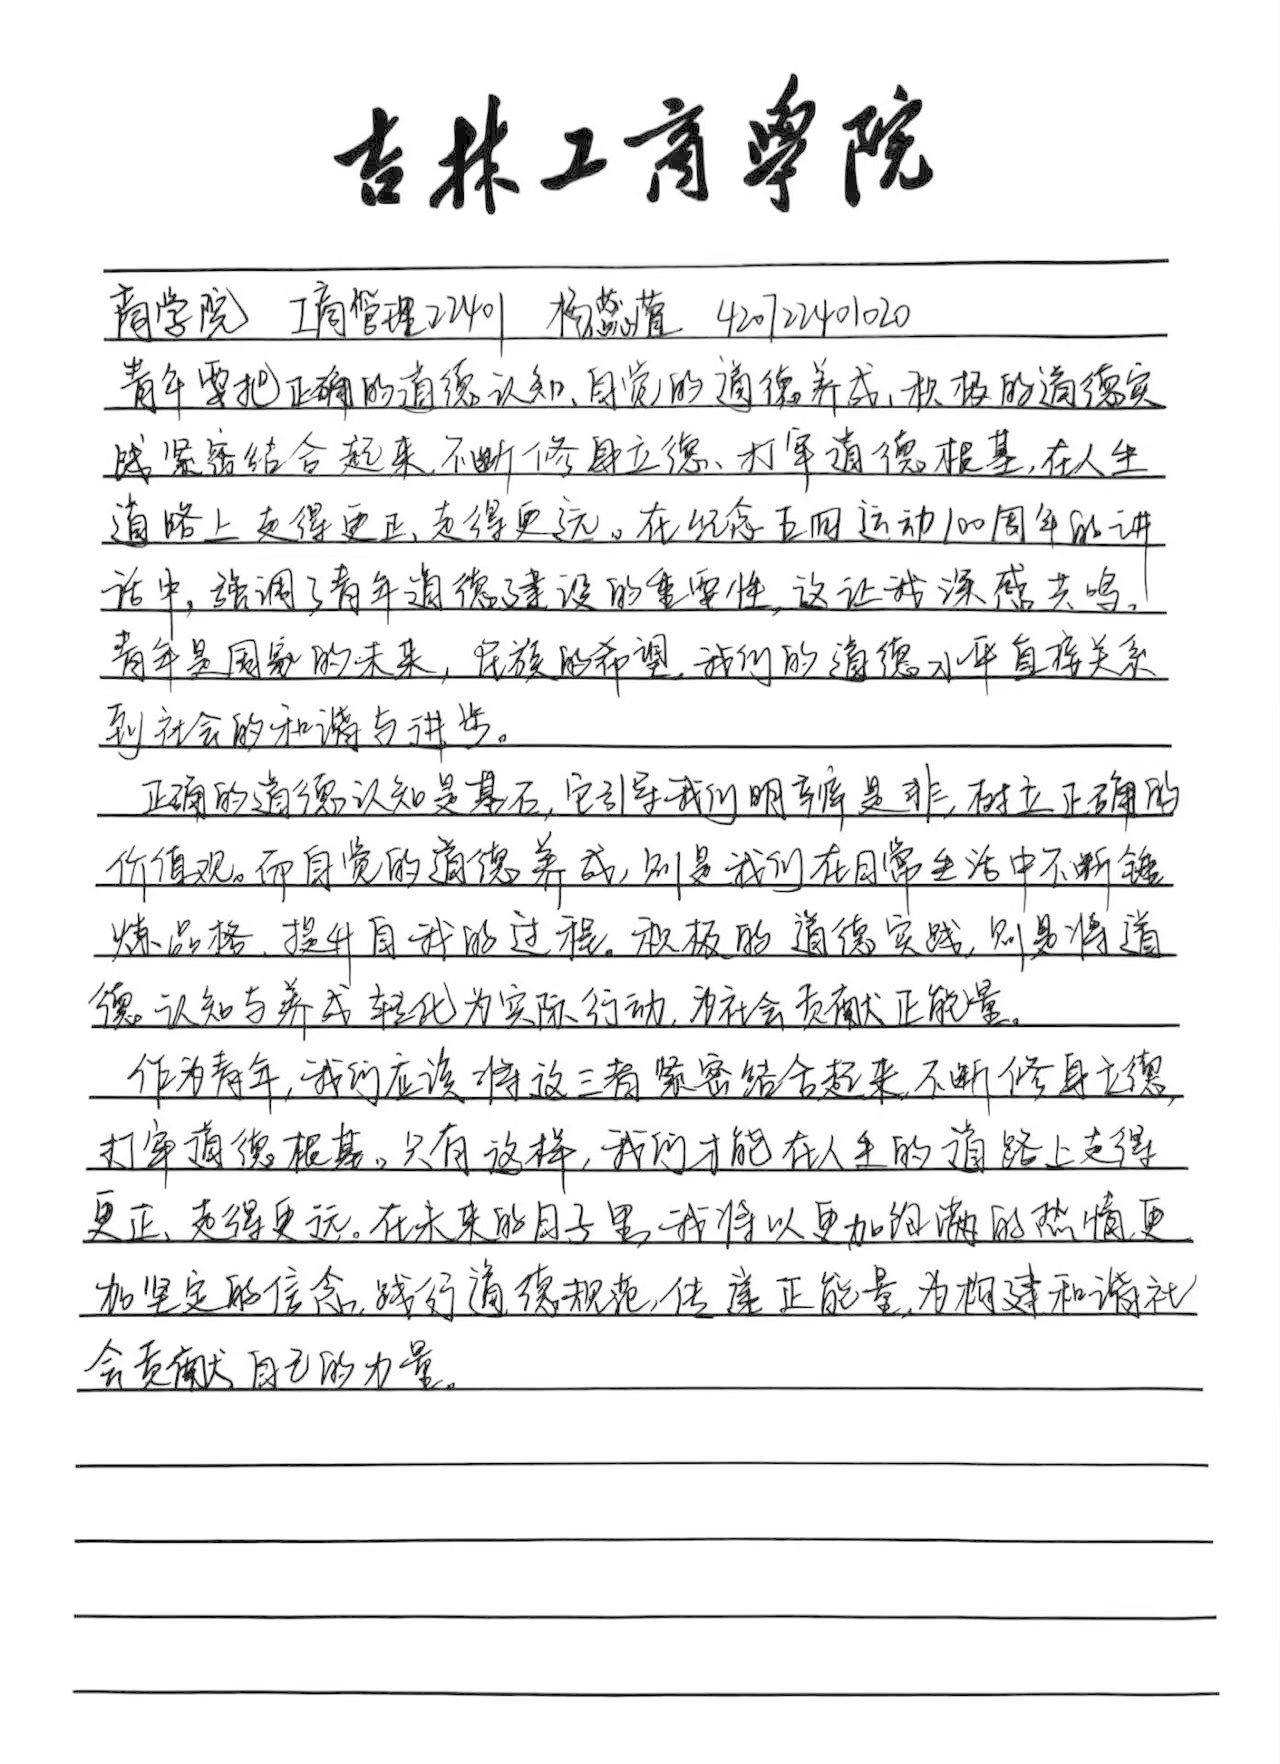 吉林工商學院
商学院 工商管理22401 杨蕊菁 42072240102​0
青年要把正确的道德认知、自觉的道德养成、积极的道德实
践紧密结合起来,不断修身立德、打牢道德根基,在人生
道路上走得更正、走得更远。在纪念五四运动100周年的讲
话中,强调了青年道德建设的重要性,这让我深感共鸣。
青年是国家的未来,民族的希望,我们的道德水平直接关系
到社会的和谐与进步。
正确的道德认知是基石,它引导我们明辨是非,树立正确的
价值观。而自觉的道德养成,则是我们在日常生活中不断锤
炼品格、提升自我的过程。积极的道德实践,则是将道
德认知与养成转化为实际行动,为社会贡献正能量。
作为青年,我们应该将这三者紧密结合起来,不断修身立德,
打牢道德根基。只有这样,我们才能在人生的道路上走得
更正、走得更远。在未来的日子里,我将以更加饱满的热情,更
加坚定的信念,践行道德规范,传递正能量,为构建和谐社
会贡献自己的力量。